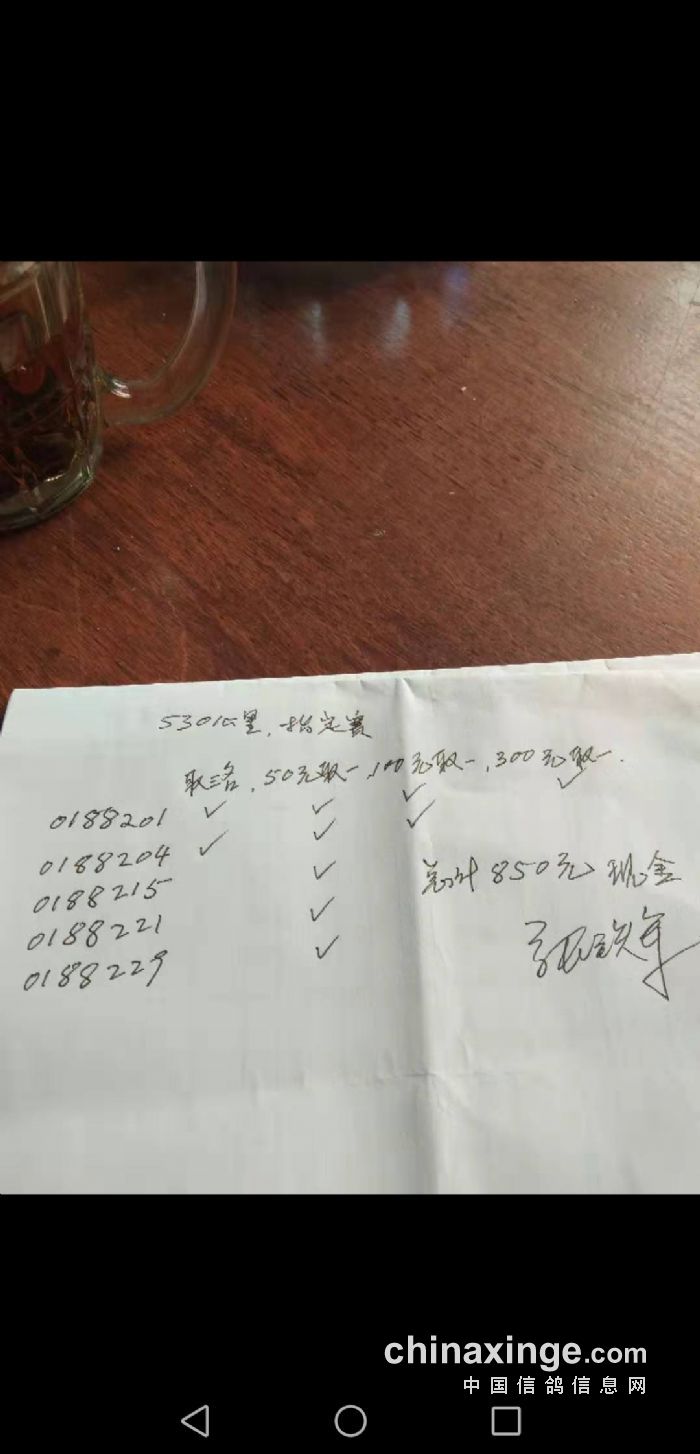 530公里，指定赛
取三名，50元取一，100元取一，300元取一．
0188201 ✓ ✓ ✓ ✓
0188204 ✓ ✓ ✓
0188215 ✓
0188221 ✓
0188229 ✓
总计850元现金
张铁军
chinaxinge.com
中国信鸽信息网